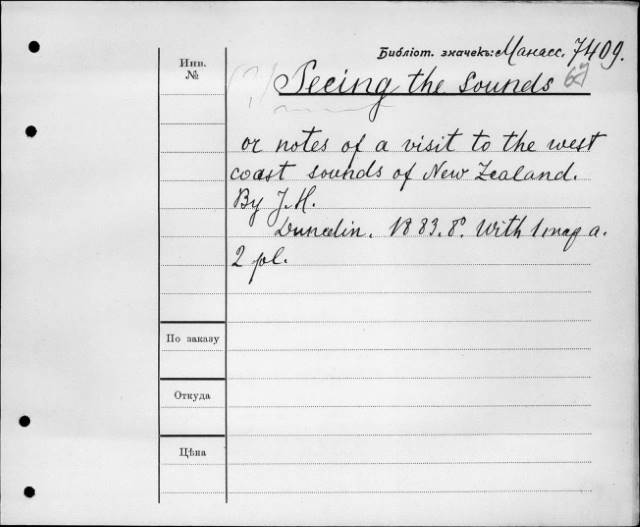 Библіот. значекъ: Манасс. 7409.
Инв.
№
(?) Peeing the sounds
or notes of a visit to the west
coast sounds of New Zealand.
By J.H.
Dunedin. 1883. 8°. With 1 map a.
2 pl.
По заказу
Откуда
Цѣна